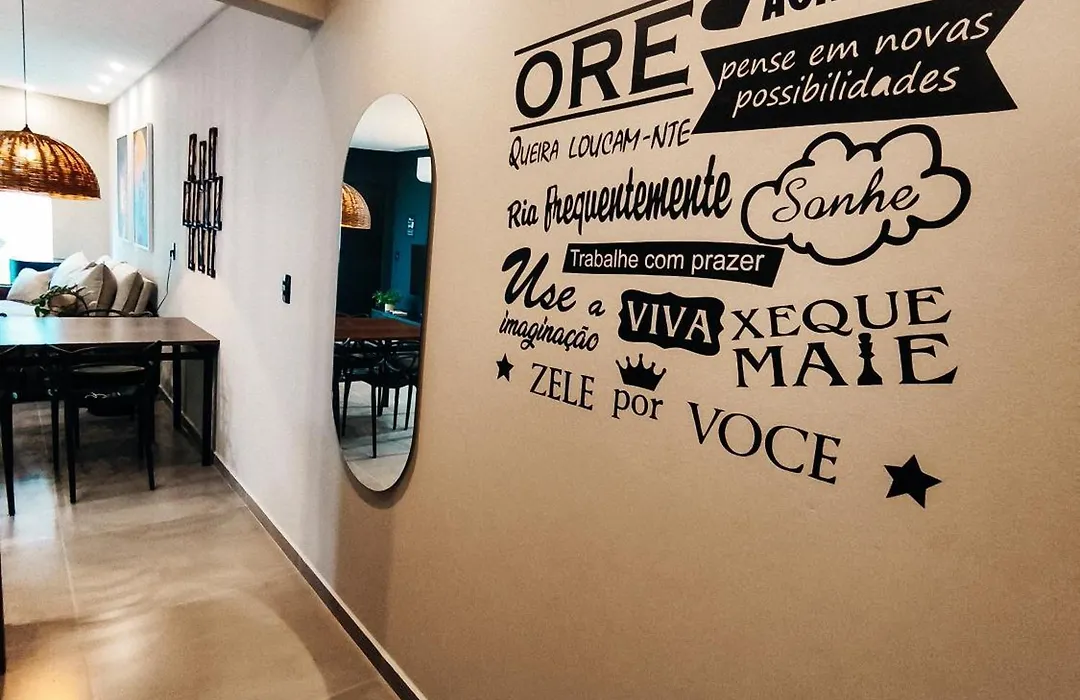 ORE
pense em novas
possibilidades
QUEIRA LOUCAM-NTE
Ria frequentemente
Sonhe
Trabalhe com prazer
Use a
imaginação
VIVA
XEQUE
MATE
ZELE por VOCE